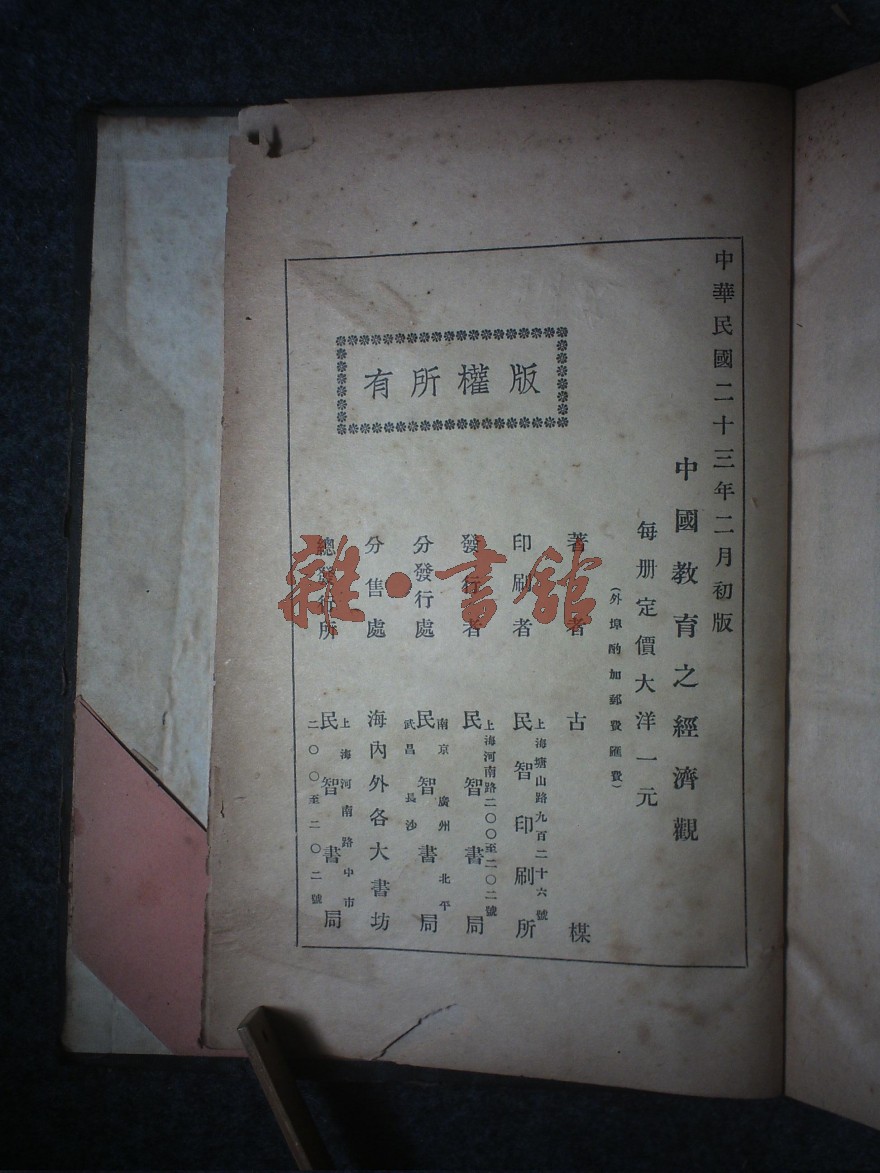 中華民國二十三年二月初版
中國教育之經濟觀
每册定價大洋一元
(外埠酌加郵費匯費)
著者 古楳
印刷者 上海塘山路九百二十六號
民智印刷所
發行者 上海河南路二〇〇至二〇二號
民智書局
分發行處 南京 廣州 北平
民智書局
武昌 長沙
分售處 海內外各大書坊
總發行所 上海河南路中市
民智書局
二〇〇至二〇二號
版權所有
雜·書館